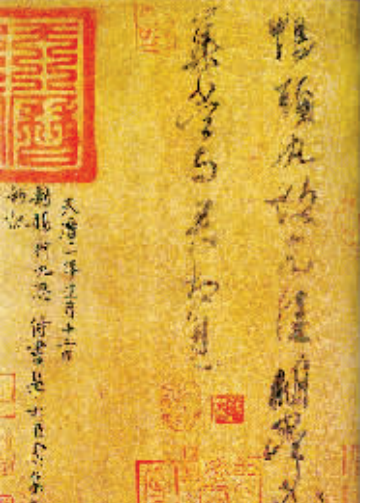 鴨頭丸故不佳明當必
集當與君相見
天曆三年正月十二日
敕賜柯九思 侍書學士臣虞集
奉敕記